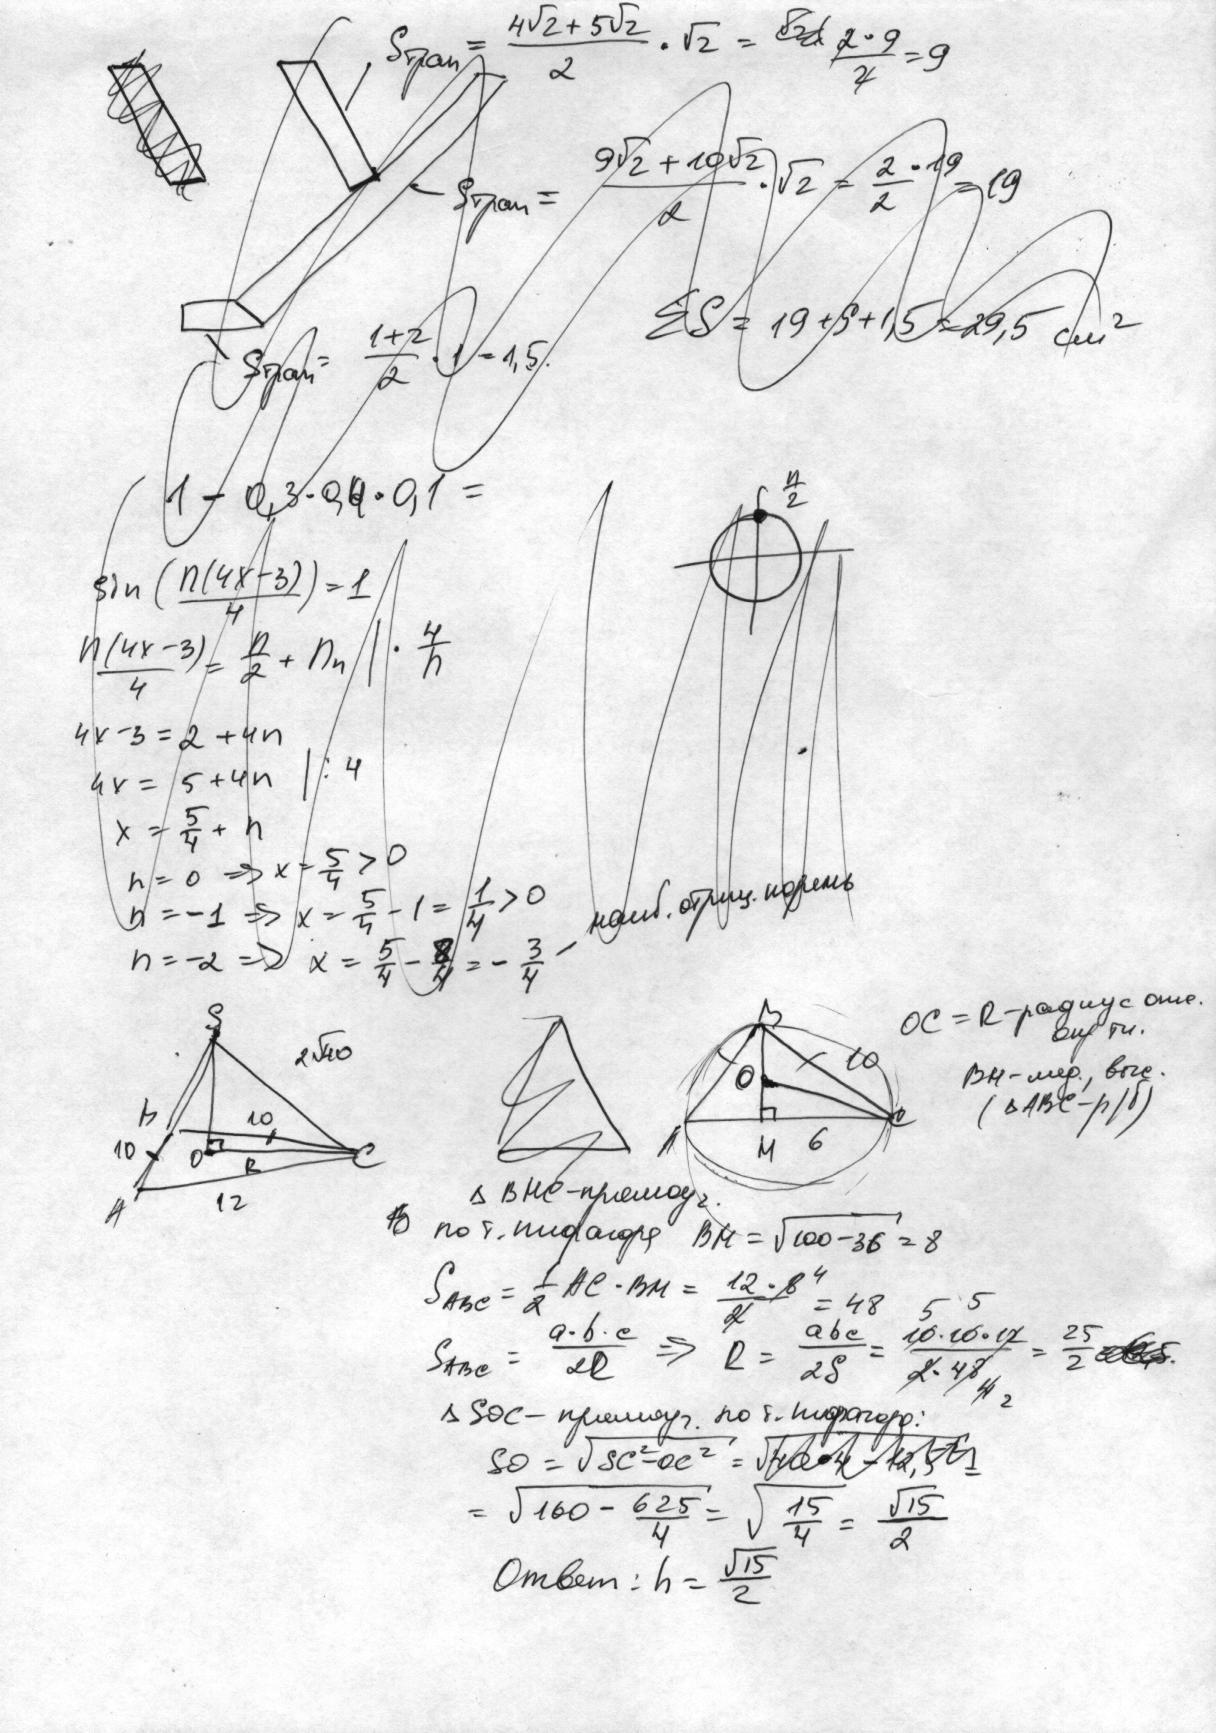 Sтрап = (4√2 + 5√2)/2 · √2 = 2·9/2 = 9
Sтрап = (9√2 + 10√2)/2 · √2 = 2·19/2 = 19
ΣS = 19 + 9 + 1,5 = 29,5 см²
Sтрап = (1+2)/2 · 1 = 1,5.
1 − 0,3·0,4·0,1 =
π/2
sin (π(4x−3)/4) = 1
π(4x−3)/4 = π/2 + πn | · 4/π
4x−3 = 2 + 4n
4x = 5 + 4n | : 4
x = 5/4 + n
n = 0 => x = 5/4 > 0
n = −1 => x = 5/4 − 1 = 1/4 > 0
n = −2 => x = 5/4 − 8/4 = − 3/4 − наиб. отриц. корень
S
2√40
B
10
10
O
R
C
A
12
B
O
10
A
M
6
OC = R − радиус опис.
окр-ти.
BM − мед., выс.
(△ABC − р/б)
△ BMC − прямоуг.
по т. Пифагора BM = √(100−36) = 8
S_ABC = 1/2 AC · BM = 12·8/2 = 48
S_ABC = a·b·c/2R => R = abc/2S = 10·10·12/2·48 = 25/2
△ SOC − прямоуг. по т. Пифагора:
SO = √(SC²−OC²) =
= √(160 − 625/4) = √(15/4) = √15/2
Ответ: h = √15/2